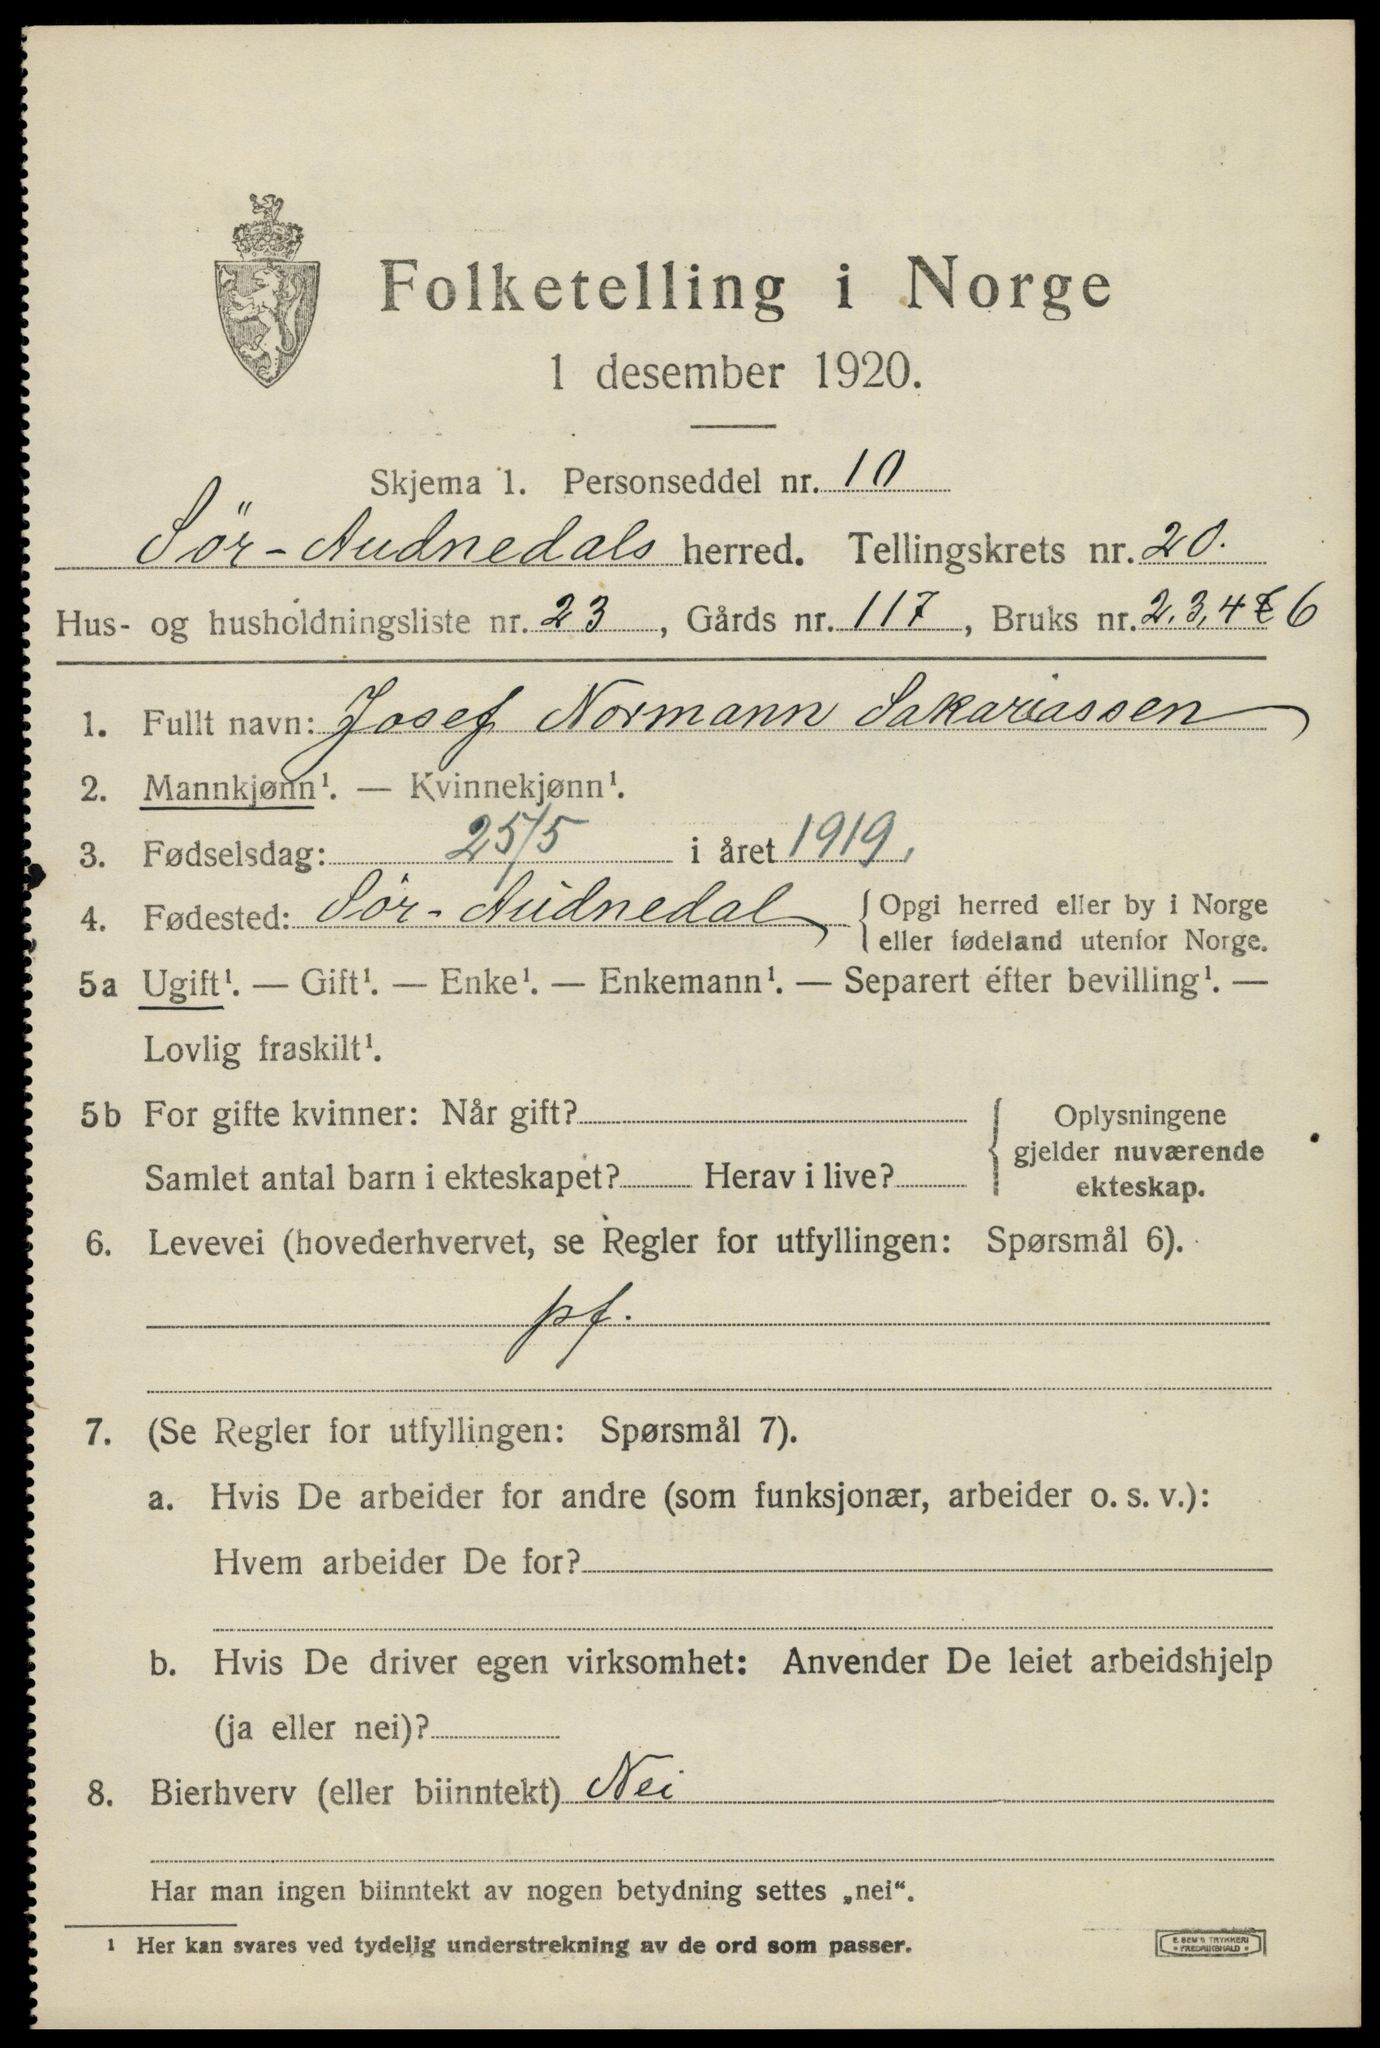 Folketelling i Norge
1 desember 1920.
Skjema 1. Personseddel nr. 10
Sør-Audnedals herred. Tellingskrets nr. 20.
Hus- og husholdningsliste nr. 23, Gårds nr. 117, Bruks nr. 2,3,4 & 6
1. Fullt navn: Josef Normann Sakariassen
2. Mannkjønn¹. — Kvinnekjønn¹.
3. Fødselsdag: 25/5 i året 1919.
4. Fødested: Sör-Audnedal { Opgi herred eller by i Norge
eller fødeland utenfor Norge.
5a Ugift¹. — Gift¹. — Enke¹. — Enkemann¹. — Separert efter bevilling¹. —
Lovlig fraskilt¹.
5b For gifte kvinner: Når gift?
Samlet antal barn i ekteskapet? Herav i live?
{ Oplysningene
gjelder nuværende
ekteskap.
6. Levevei (hovederhvervet, se Regler for utfyllingen: Spørsmål 6).
pf.
7. (Se Regler for utfyllingen: Spørsmål 7).
a. Hvis De arbeider for andre (som funksjonær, arbeider o. s. v.):
Hvem arbeider De for?
b. Hvis De driver egen virksomhet: Anvender De leiet arbeidshjelp
(ja eller nei)?
8. Bierhverv (eller biinntekt) Nei
Har man ingen biinntekt av nogen betydning settes „nei“.
¹ Her kan svares ved tydelig understrekning av de ord som passer.
E SEM'S TRYKKERI
* FREDRIKSHALD *